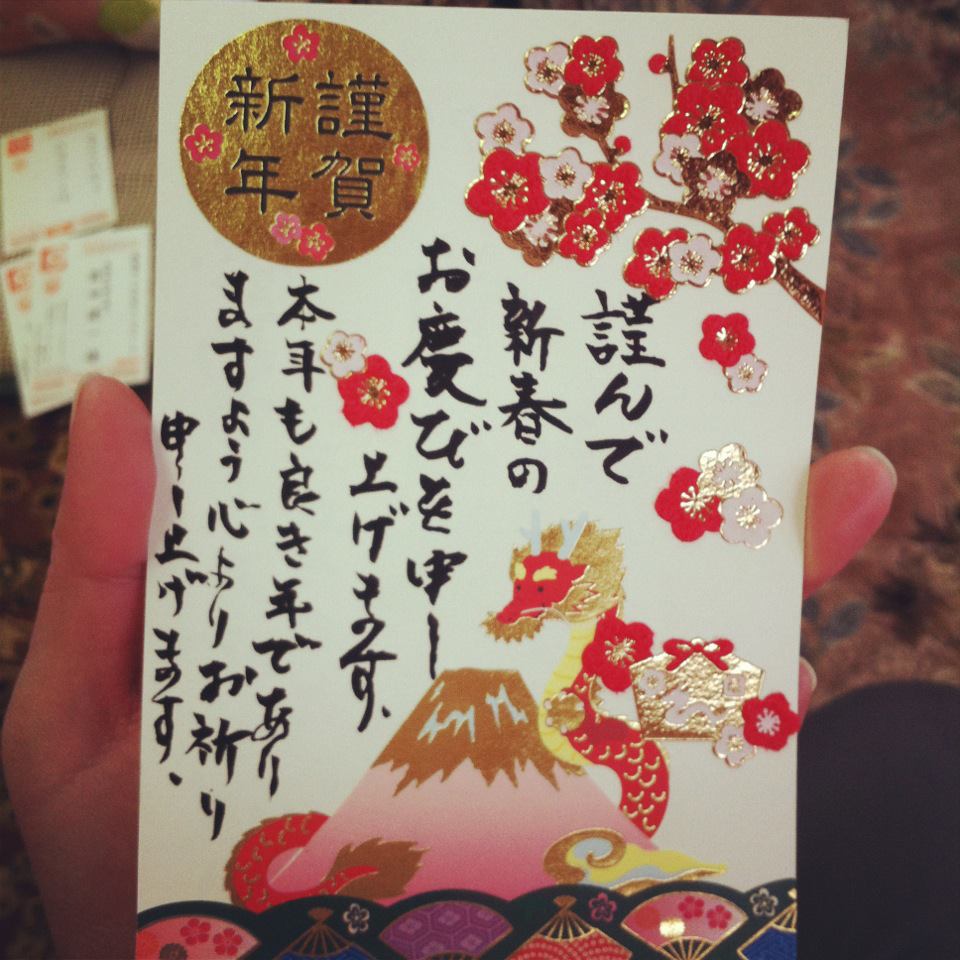 謹賀
新年
謹んで
新春の
お慶びを申し
上げます、
本年も良き年であり
ますよう心よりお祈り
申し上げます、